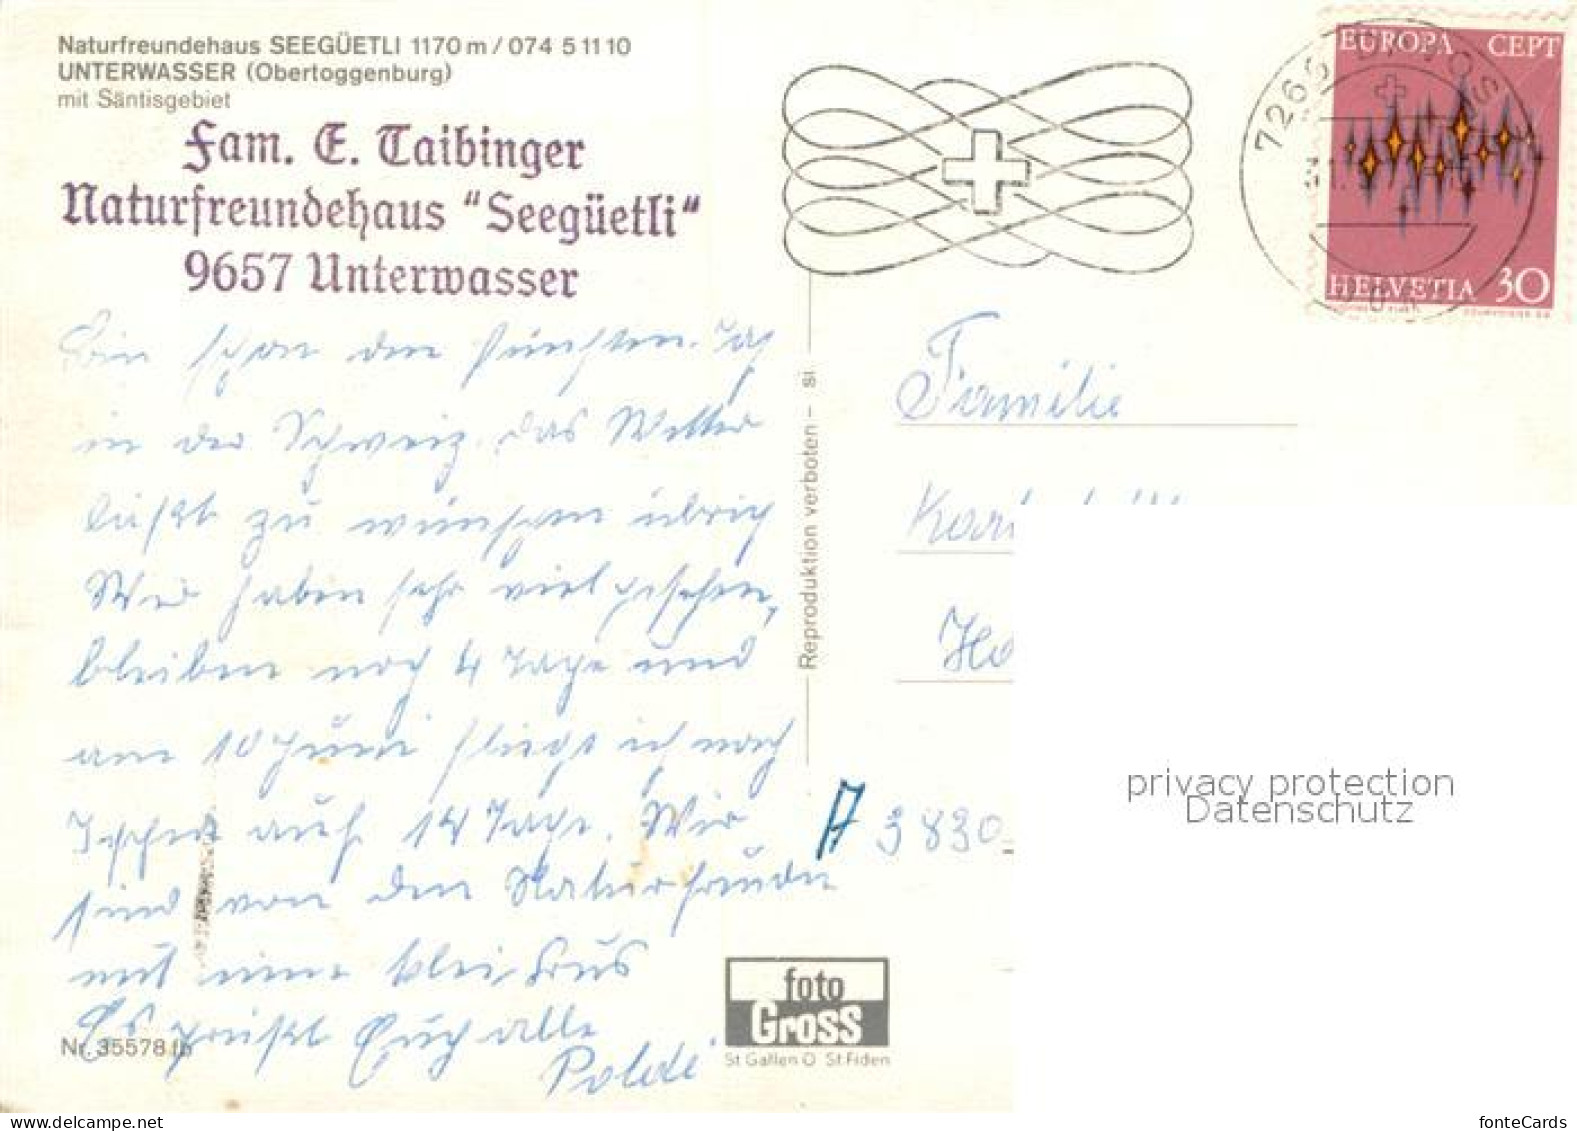 Naturfreundehaus SEEGÜETLI 1170 m / 074 5 11 10
UNTERWASSER (Obertoggenburg)
mit Säntisgebiet
Fam. E. Taibinger
Naturfreundehaus "Seegüetli"
9657 Unterwasser
Bin schon den fünften Tag
in der Schweiz. das Wetter
läßt zu wünschen übrig
Wir haben sehr viel gesehen,
bleiben noch 4 Tage und
am 10 Juni fliege ich nach
auf 14 Tage. Wir
sind von den Naturfreunden
mit eine
Es grüßt Euch alle
Poldi
Nr. 35578
Reproduktion verboten – si.
foto
Gross
St Gallen O St Fiden
EUROPA CEPT
HELVETIA 30
7260 DAVOS
Familie
A 3830
privacy protection
Datenschutz
fonteCards